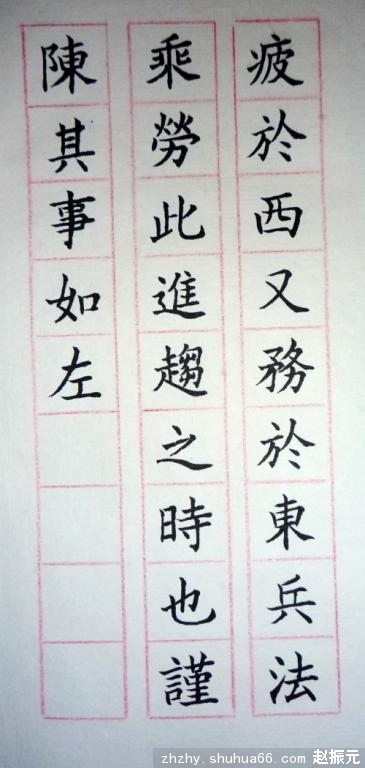 疲於西又務於東兵法
乘勞此進趨之時也謹
陳其事如左
zhzhy.shuhua66.com 赵振元